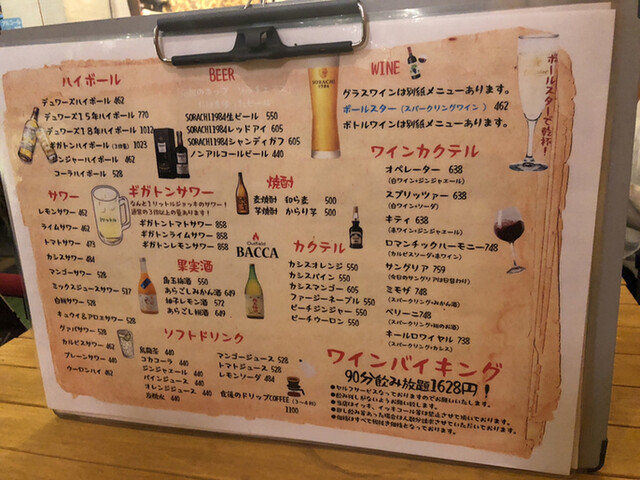 ハイボール
デュワーズハイボール 462
デュワーズ15年ハイボール 770
デュワーズ18年ハイボール 1012
ギガトンハイボール (3倍量) 1023
ジンジャーハイボール 462
コーラハイボール 528
サワー
レモンサワー 462
ライムサワー 462
トマトサワー 473
カシスサワー 484
マンゴーサワー 528
ミックスジュースサワー 517
白桃サワー 528
キュウイ&アロエサワー 528
グァバサワー 528
カルピスサワー 462
プレーンサワー 440
ウーロンハイ 462
BEER
SORACHI1984生ビール 550
SORACHI1984レッドアイ 605
SORACHI1984シャンディガフ 605
ノンアルコールビール 440
ギガトンサワー
なんと1リットルジョッキのサワー!
通常の3倍以上の量あります!
ギガトントマトサワー 858
ギガトンライムサワー 858
ギガトンレモンサワー 858
焼酎
麦焼酎 和ら麦 500
芋焼酎 からり芋 500
果実酒
角玉梅酒 550
あらごしみかん酒 649
柚子レモン酒 572
あらごし桃酒 649
BACCA
カクテル
カシスオレンジ 550
カシスパイン 550
カシスマンゴー 605
ファジーネーブル 550
ピーチジンジャー 550
ピーチウーロン 550
ソフトドリンク
烏龍茶 440
コカコーラ 440
ジンジャエール 440
パインジュース 440
オレンジジュース 440
炭酸水 440
マンゴージュース 528
トマトジュース 528
レモンソーダ 484
食後のドリップCOFFEE (3〜4人分)
1100
WINE
グラスワインは別紙メニューあります。
ポールスター (スパークリングワイン) 462
ボトルワインは別紙メニューあります。
ポールスターで乾杯!
SORACHI
1984
ワインカクテル
オペレーター 638
(白ワイン+ジンジャエール)
スプリッツァー 638
(白ワイン+ソーダ)
キティ 638
(赤ワイン+ジンジャエール)
ロマンチックハーモニー 748
(カルピスソーダ+赤ワイン)
サングリア 759
ミモザ 748
(スパークリング+みかん酒)
ベリーニ 748
(スパークリング+桃のお酒)
キールロワイヤル 738
(スパークリング+カシス)
ワインバイキング
90分飲み放題1628円!
●セルフサービスなっておりますのでお願いいたします。
●飲み残しがないようお願い致します。